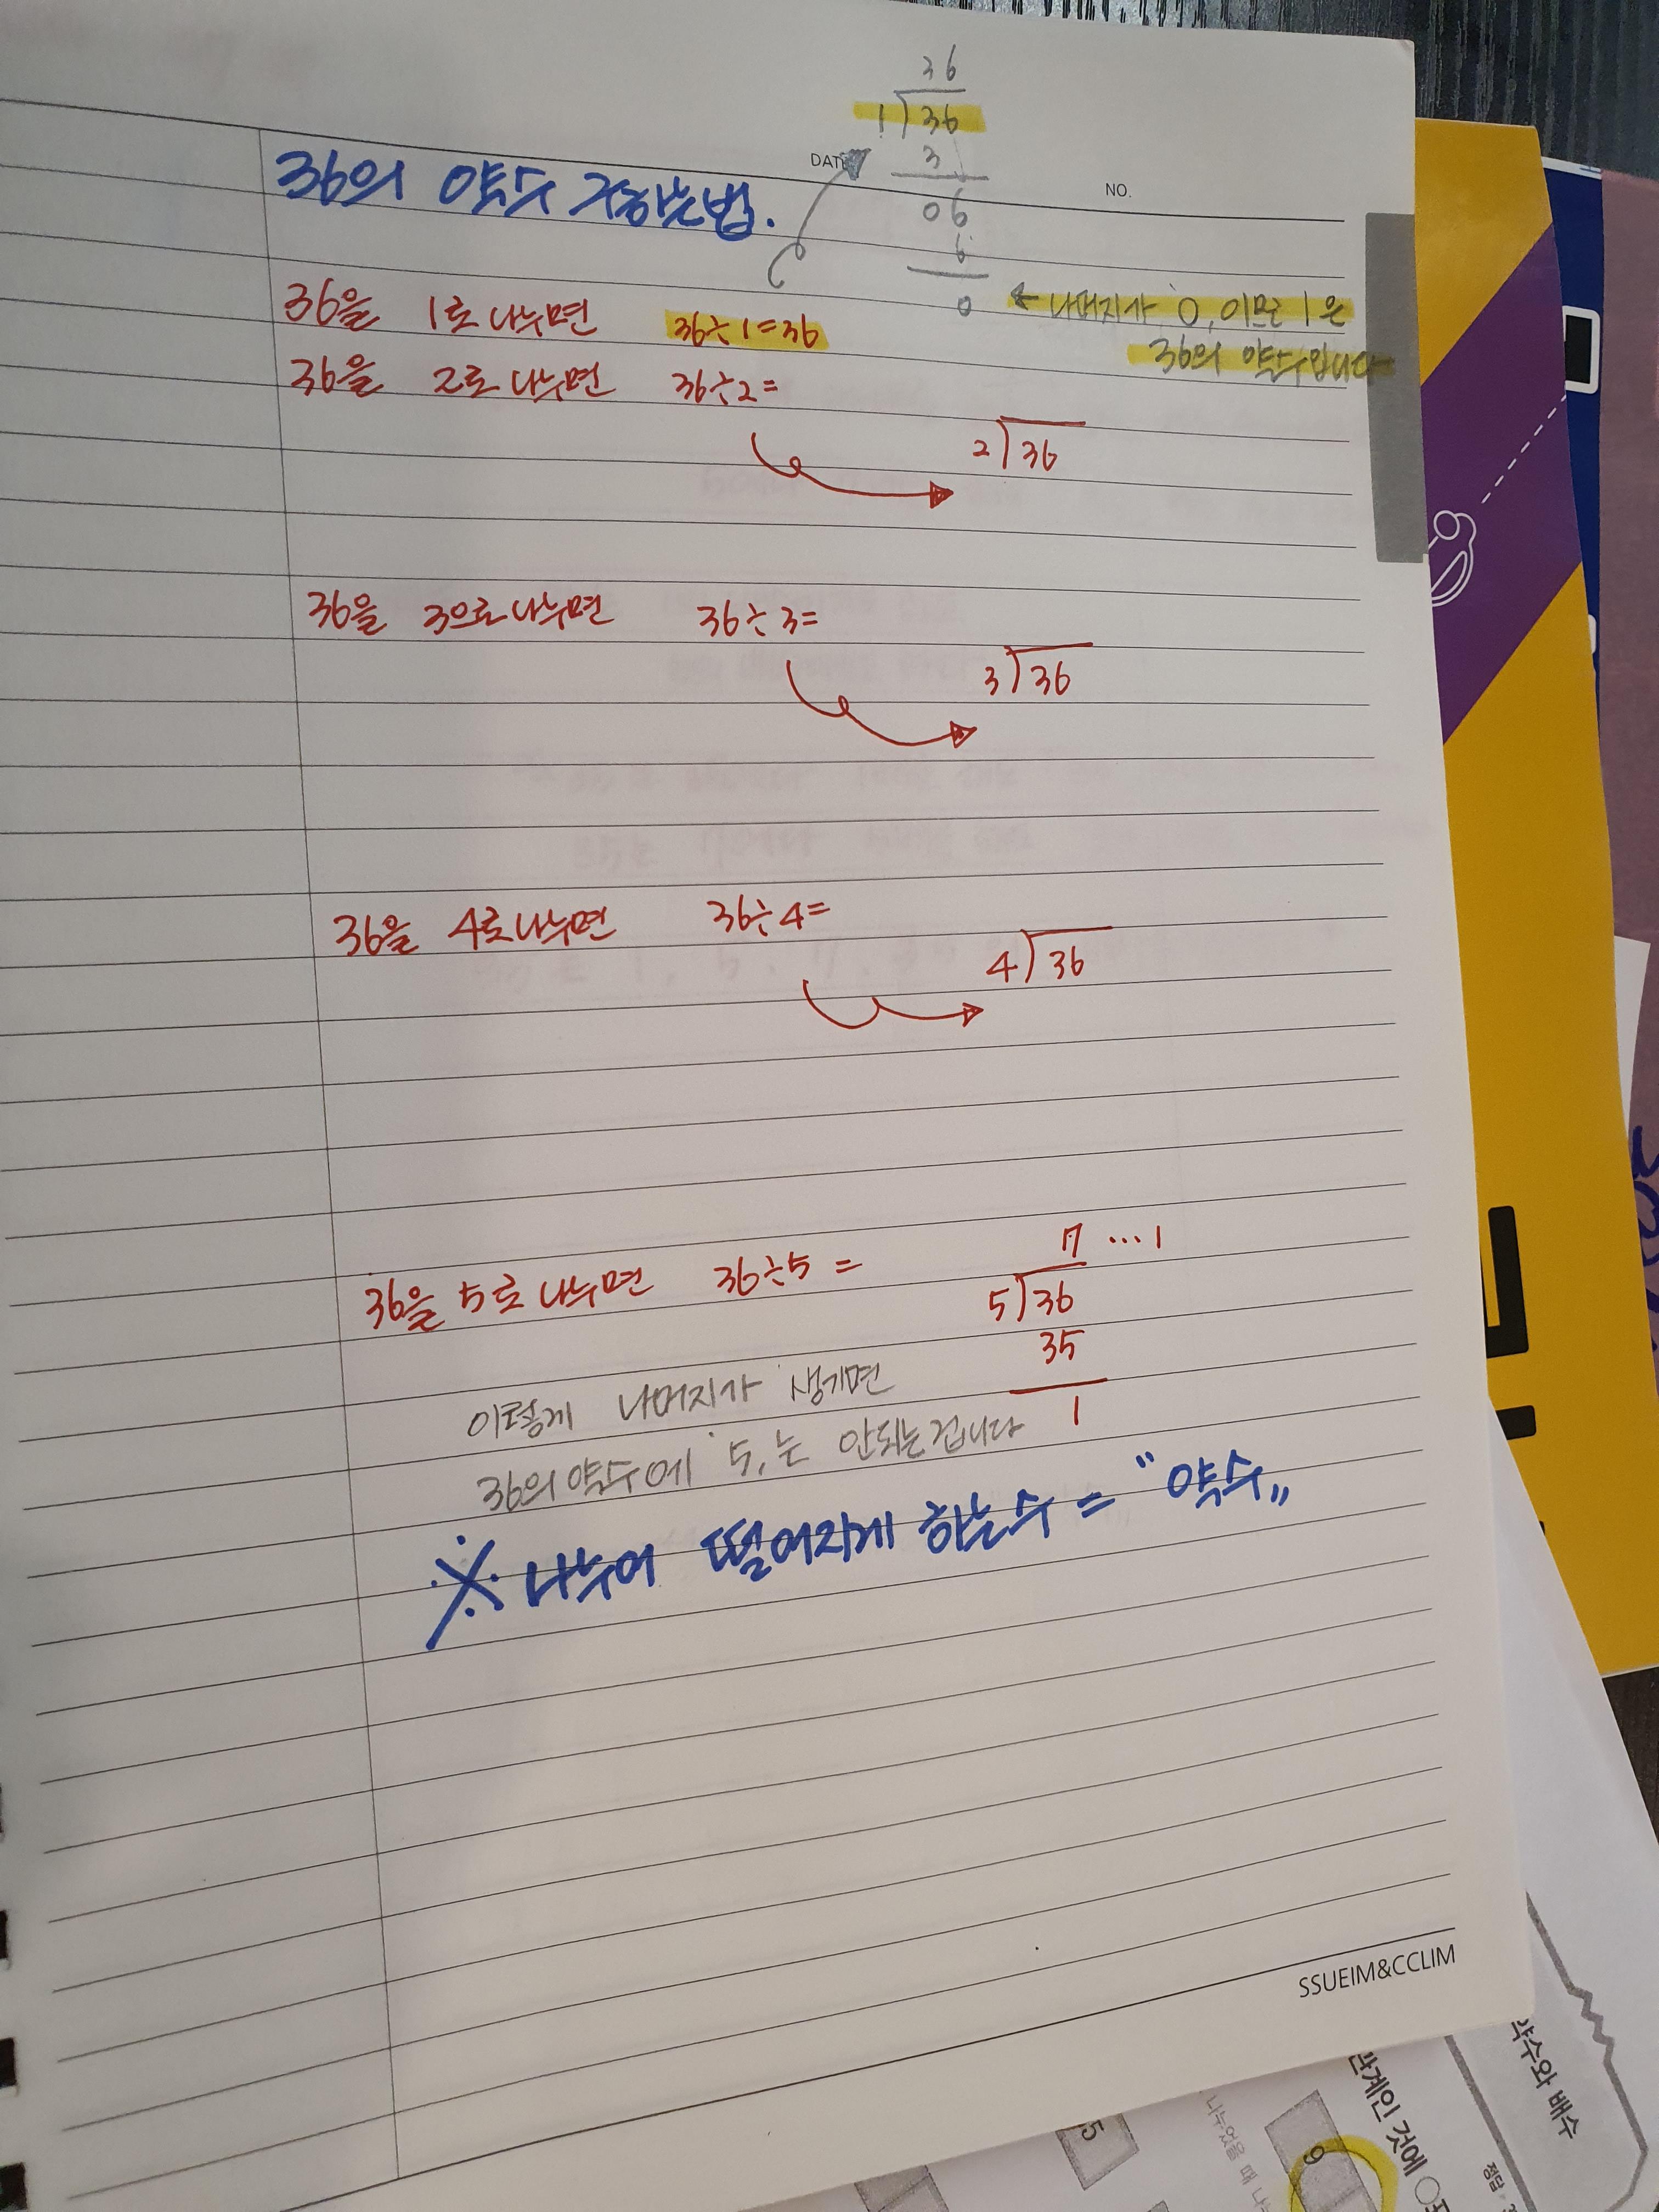 36
1)36
DATE
3
NO.
36의 약수 구하는법.
06
6
0 ← 나머지가 0, 이므로 1은
36의 약수입니다
36을 1로 나누면 36÷1=36
36을 2로 나누면 36÷2=
2)36
36을 3으로 나누면 36÷3=
3)36
36을 4로 나누면 36÷4=
4)36
7 ...1
36을 5로 나누면 36÷5 =
5)36
35
1
이렇게 나머지가 생기면
36의 약수에 5,는 안되는겁니다
※ 나누어 떨어지게 하는수 = "약수"
SSUEIM&CCLIM
약수와 배수
관계인 것에
정답
나누었을 때
9
5